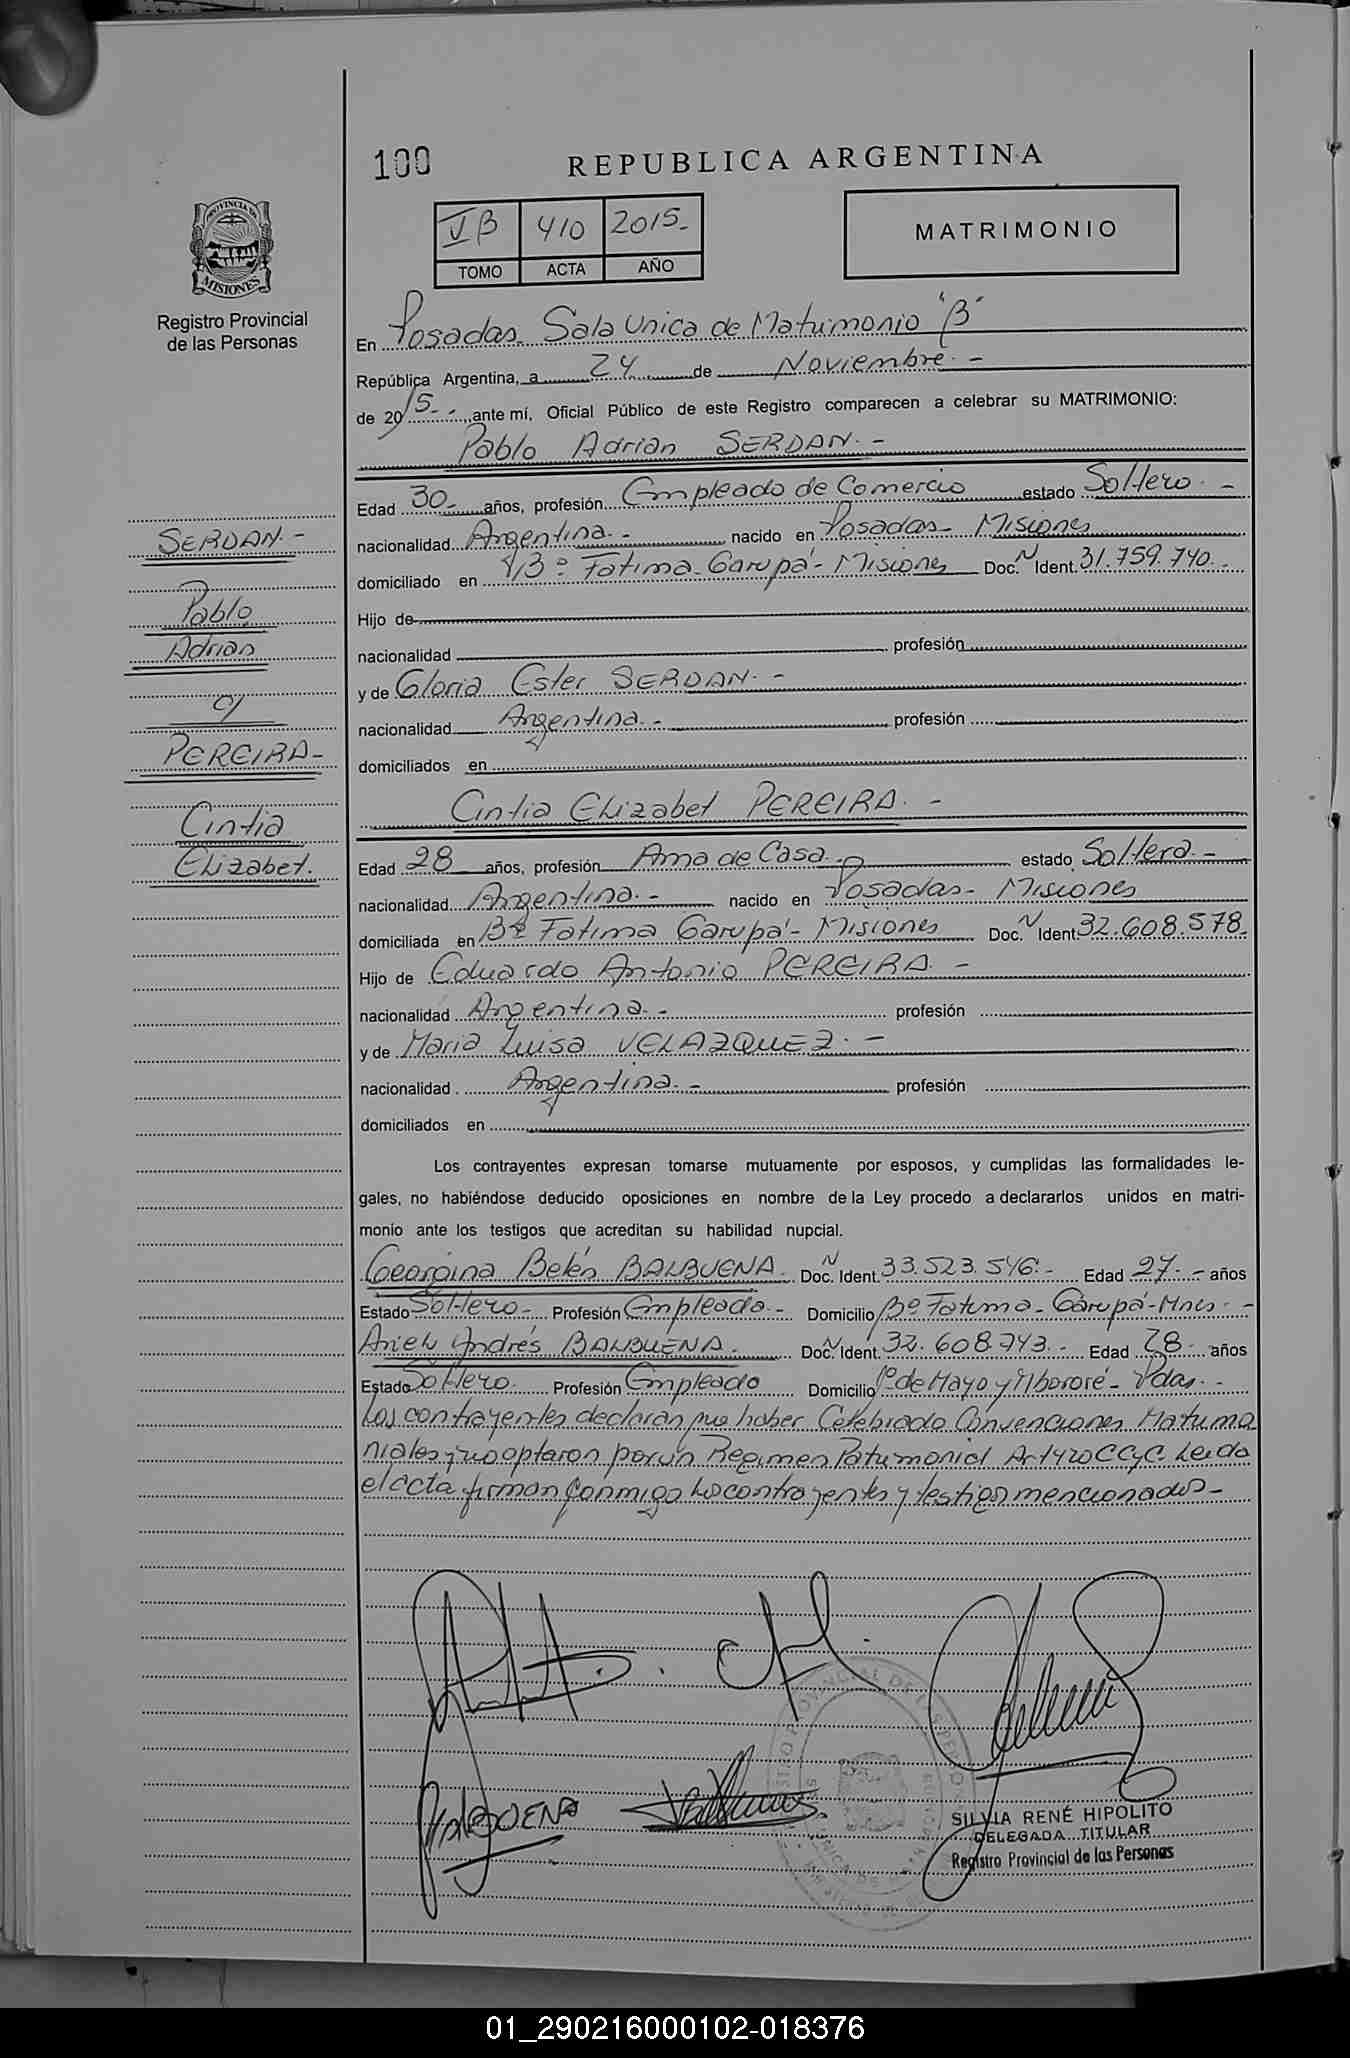 100
REPUBLICA ARGENTINA
IB 410 2015.-
TOMO ACTA AÑO
MATRIMONIO
PROVINCIA DE
MISIONES
Registro Provincial
de las Personas
En Posadas. Sala Unica de Matrimonio "B"
República Argentina, a 24 de Noviembre.-
de 2015.- ante mí, Oficial Público de este Registro comparecen a celebrar su MATRIMONIO:
Pablo Adrian SERDAN.-
Edad 30.- años, profesión Empleado de Comercio estado Soltero.-
nacionalidad Argentina.- nacido en Posadas- Misiones
domiciliado en Bº Fatima- Garupá- Misiones Doc. N Ident. 31.759.740.-
Hijo de
nacionalidad profesión
y de Gloria Ester SERDAN.-
nacionalidad Argentina.- profesión
domiciliados en
SERDAN.-
Pablo
Adrian
c/
PEREIRA-
Cintia
Elizabet.
Cintia Elizabet PEREIRA.-
Edad 28 años, profesión Ama de Casa.- estado Soltera.-
nacionalidad Argentina.- nacido en Posadas- Misiones
domiciliada en Bº Fatima Garupá- Misiones Doc. N Ident. 32.608.578.
Hijo de Eduardo Antonio PEREIRA.-
nacionalidad Argentina.- profesión
y de Maria Luisa VELAZQUEZ.-
nacionalidad Argentina.- profesión
domiciliados en
Los contrayentes expresan tomarse mutuamente por esposos, y cumplidas las formalidades le-
gales, no habiéndose deducido oposiciones en nombre de la Ley procedo a declararlos unidos en matri-
monio ante los testigos que acreditan su habilidad nupcial.
Georgina Belén BALBUENA. Doc. N Ident. 33.523.546.- Edad 27.- años
Estado Soltero- Profesión Empleada.- Domicilio Bº Fatima- Garupá- Mnes.-
Ariel Andrés BALBUENA. Doc. N Ident. 32.608.743.- Edad 28.- años
Estado Soltero. Profesión Empleado Domicilio 1º de Mayo y Itbororé- Pdas.-
Los contrayentes declaran no haber Celebrado Convenciones Matrimo
niales y no optaron por un Regimen Patrimonial Art 420 CCyC. Leida
el acta firman Conmigo Los contrayentes y testigos mencionados-
BALBUENA
SILVIA RENÉ HIPOLITO
DELEGADA TITULAR
Registro Provincial de las Personas
01_290216000102-018376